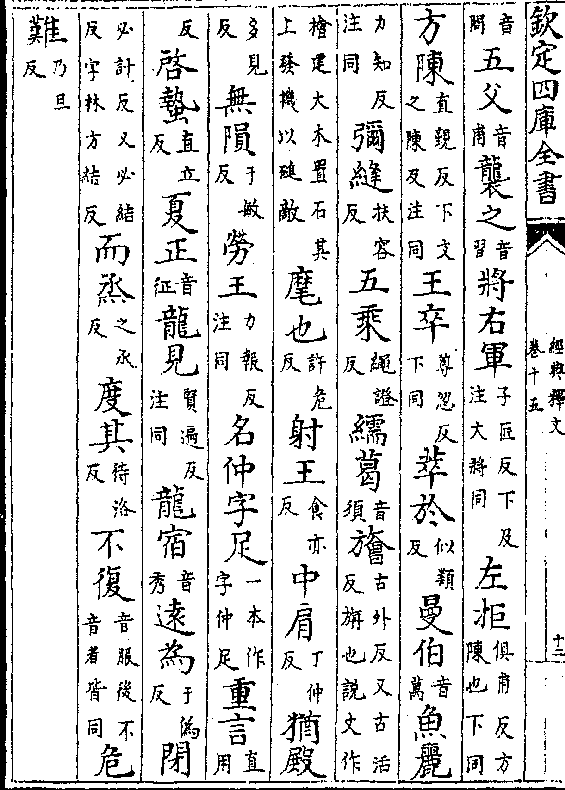 欽定四庫全書
經典釋文
卷十五
十三
音問五父音甫襲之音習將右軍子匠反下及注大將同左拒俱甫反方陳也下同
方陳直覲反下文之陳及注同王卒尊忽反下同萃於似類反曼伯音萬魚麗
力知反注同彌縫扶容反五乘繩證反繻葛音須旝古外反又古活反旃也說文作
檜建大木置石其上發機以磓敵麾也許危反射王食亦反中肩丁仲反猶殿
多見反無隕于敏反勞王力報反注同名仲字足一本作字仲足重言直用
反啓蟄直立反夏正音征龍見賢遍反注同龍宿音秀遠為于偽反閉
必計反又必結反字林方結反而烝之承反度其待洛反不復音服後不音者皆同危
難乃旦反